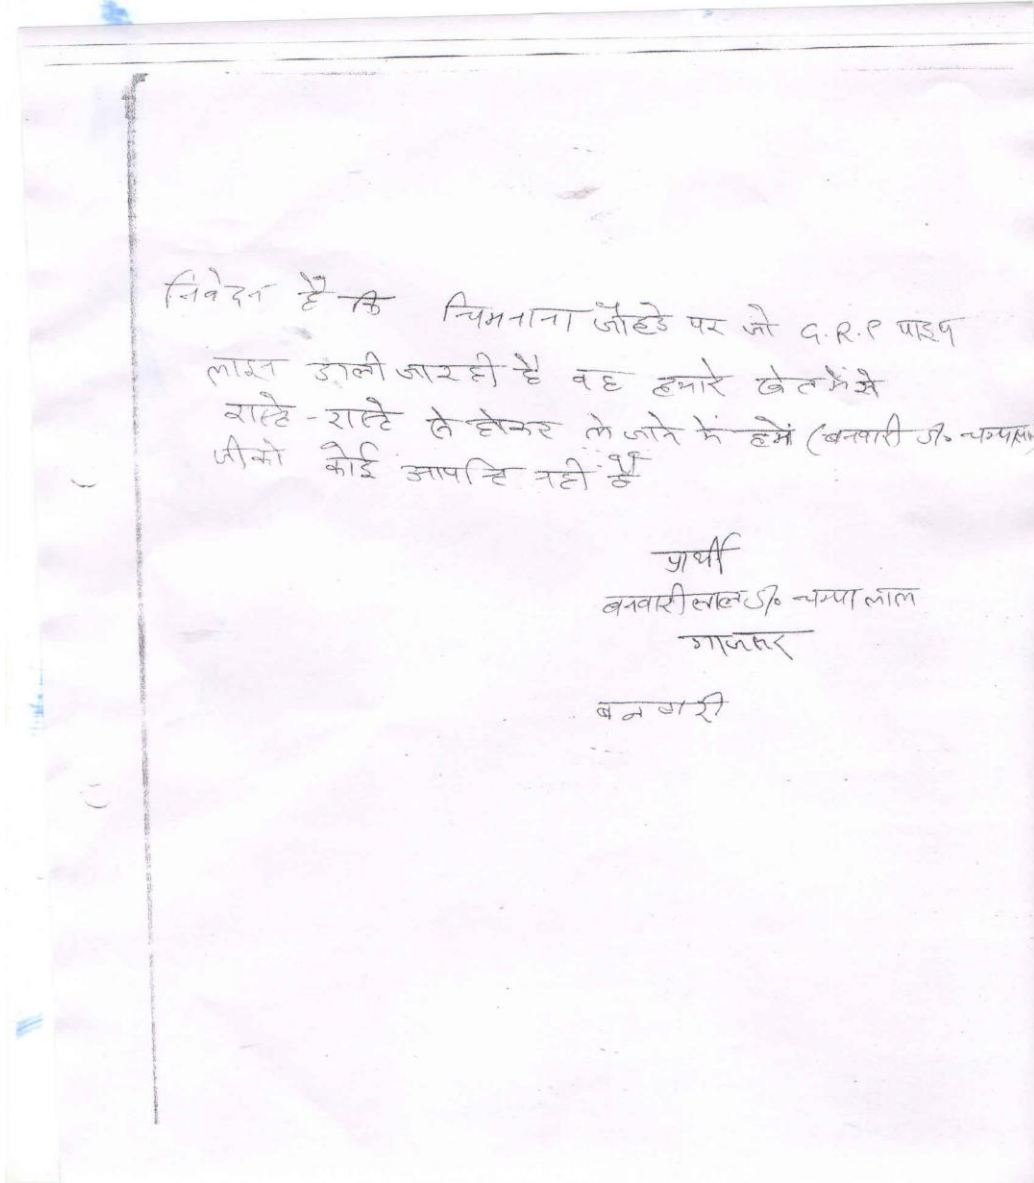 निवेदन है कि चिमनाना जोहडे पर जो G.R.P पाइप
लाइन डाली जा रही है वह हमारे खेत में से
रास्ते - रास्ते से होकर ले जाने में हमें (बनवारी S/o चम्पालाल
जी को कोई आपत्ति नही है
प्रार्थी
बनवारी लाल S/o चम्पा लाल
गाजसर
बनवारी